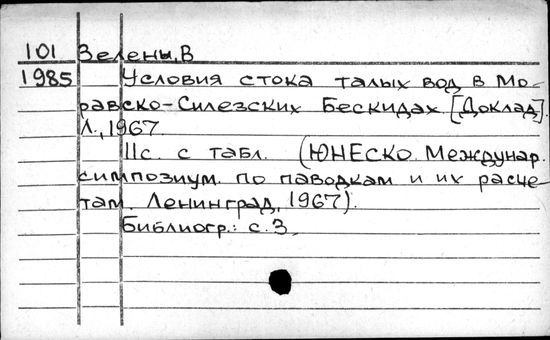 101 Зелены, В
1985 Условия стока талых вод в Мо-
равско-Силезских Бескидах. [Доклад].
Л., 1967.
11с. с табл. (ЮНЕСКО. Междунар.
симпозиум по паводкам и их расче-
там. Ленинград, 1967).
Библиогр.: с. 3.